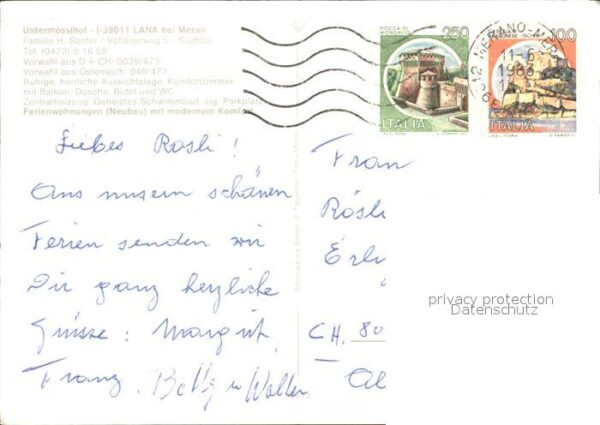 Untermösslhof - I-39011 LANA bei Meran
Familie H. Santer / Völlanerweg 5 - Südtirol
Tel. (0473) 5 16 59
Vorwahl aus D + CH: 0039/473
Vorwahl aus Österreich: 040/473
Ruhige, herrliche Aussichtslage, Komfortzimmer
mit Balkon, Dusche, Bidet und WC
Zentralheizung, Geheiztes Schwimmbad, eig. Parkplatz
Ferienwohnungen (Neubau) mit modernem Komfort
ROCCA DI
MONDAVIO
250
ITALIA
100
ITALIA
MERANO-MER
11-6
Liebes Rösli!
Aus unsern schönen
Ferien senden wir
Dir ganz herzliche
Grüsse: Margrit
Franz. Betty u Walter
Frau
Rösli
CH. 80
privacy protection
Datenschutz